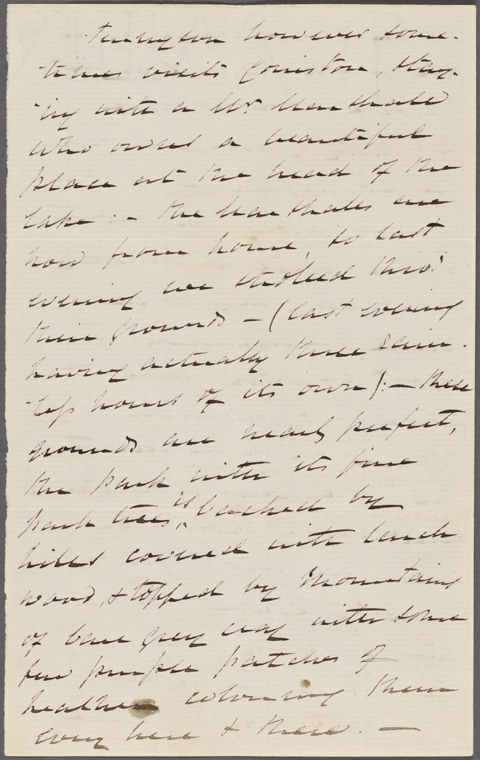 Tennyson however some-
-times visits Coniston, stay-
-ing with a Mr. Marshall
who owns a beautiful
place at the head of the
lake :- the Marshalls are
now from home, so last
evening we strolled thro'
their grounds - (last evening
having actually three rain-
-less hours of its own) :- these
grounds are nearly perfect,
the park with its fine
park trees, is backed by
hills covered with larch
wood, & topped by mountains
of bare grey crag with some
few purple patches of
heather colouring them
every here & there. -